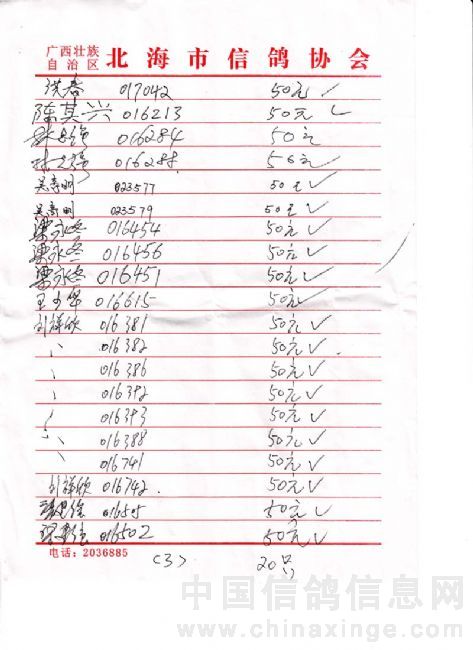 广西壮族
自治区 北海市信鸽协会
洪春 017042 50元 ✓
陈其兴 016213 50元 ✓
016284 50元
016288 50元 ✓
吴寿明 023577 50元 ✓
吴寿明 023579 50元 ✓
梁永冬 016454 50元 ✓
梁永冬 016456 50元 ✓
梁永冬 016451 50元 ✓
王少华 016615 50元 ✓
刘祥欣 016381 50元 ✓
〃 016382 50元 ✓
016386 50元 ✓
〃 016392 50元 ✓
016393 50元 ✓
〃 016388 50元 ✓
016741 50元 ✓
刘祥欣 016742 50元 ✓
016505 50元 ✓
016502 50元 ✓
电话：2036885
(3) 20只
中国信鸽信息网
www.chinaxinge.com